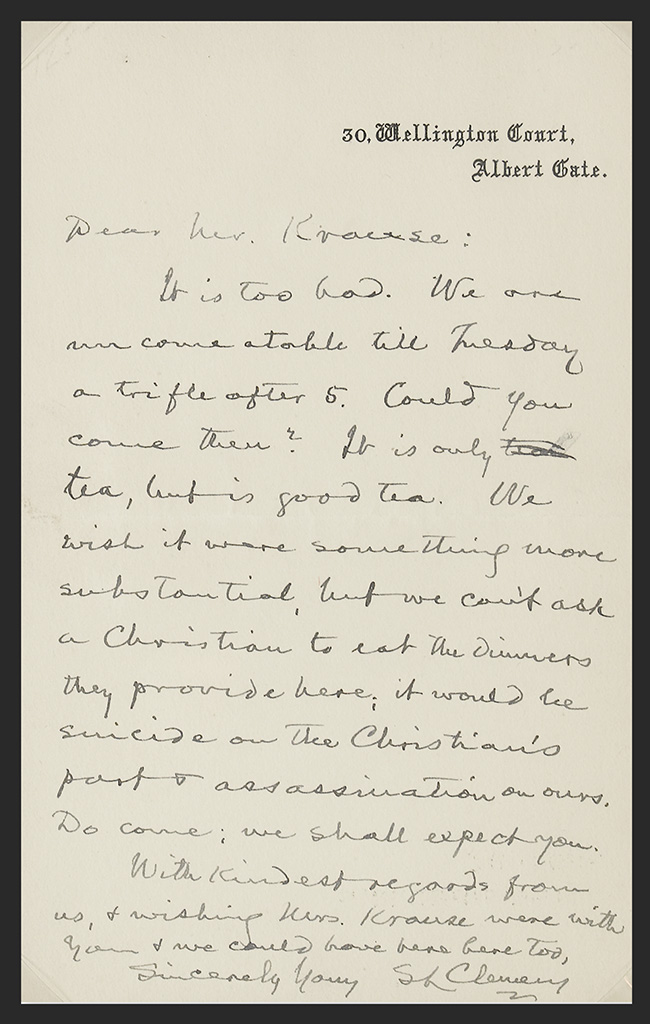 30, Wellington Court,
Albert Gate.
Dear Mr. Krause:
It is too bad. We are
un come atable till Tuesday
a trifle after 5. Could you
come then? It is only tea
tea, but is good tea. We
wish it were something more
substantial, but we can't ask
a Christian to eat the dinners
they provide here; it would be
suicide on the Christian's
part & assassination on ours.
Do come; we shall expect you.
With kindest regards from
us, & wishing Mrs. Krause were with
you & we could have here here too,
Sincerely Yours SL Clemens